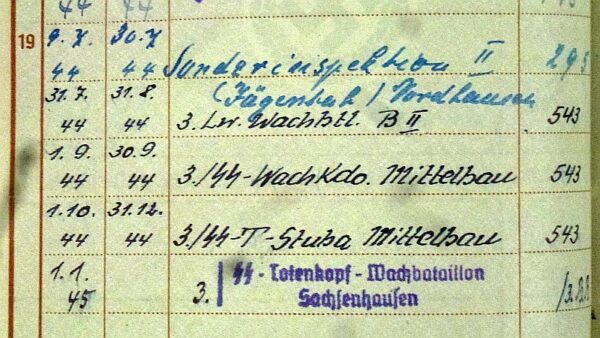 44 44
19 9.7. 30.7
44 44 Sonderinspektion II 295
31.7. 31.8. (Jägerbat / Nordhausen
44 44 3. Lw. Wachbtl. B II 543
1.9. 30.9.
44 44 3./SS-WachKdo. Mittelbau 543
1.10. 31.12.
44 44 3./SS-T-Stuba Mittelbau 543
1.1. SS-Totenkopf-Wachbataillon
45 3. Sachsenhausen